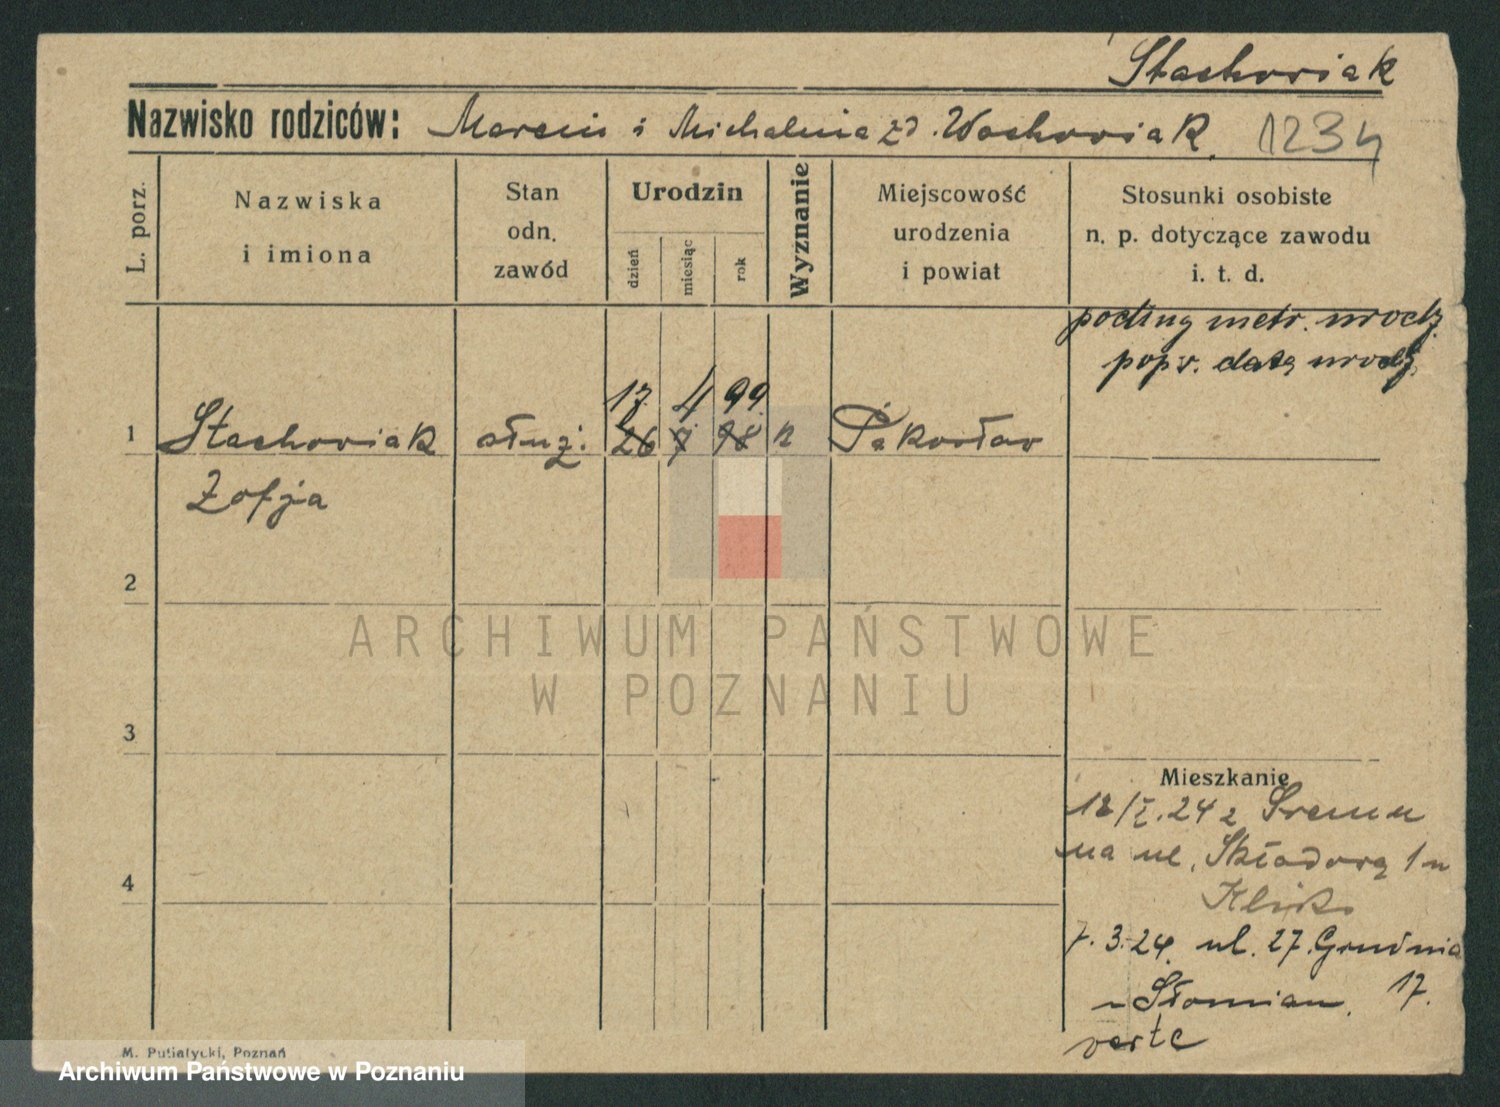 Stachowiak
Nazwisko rodziców: Marcin i Michalina zd. Wachowiak 1234
L. porz.
Nazwiska
i imiona
Stan
odn.
zawód
Urodzin
dzień
miesiąc
rok
Wyznanie
Miejscowość
urodzenia
i powiat
Stosunki osobiste
n. p. dotyczące zawodu
i. t. d.
podług metr. urodz.
popr. datę urodz.
17. 4 99.
1 Stachowiak służ. 26 7 98 k Pakosław
Zofja
2
3
4
ARCHIWUM PAŃSTWOWE
W POZNANIU
Mieszkanie
12/I.24 z Śremu
na ul. Składową 1 u
7.3.24. ul. 27. Grudnia
17.
u Słomian.
verte
M. Putiatycki, Poznań
Archiwum Państwowe w Poznaniu